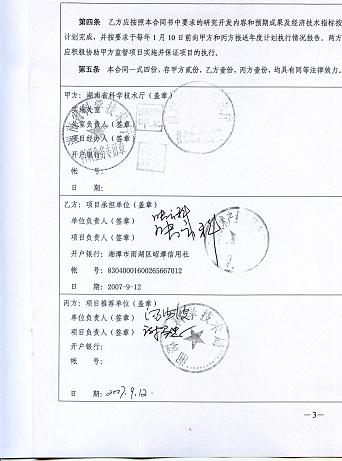 第四条 乙方应按照本合同书中要求的研究开发内容和预期成果及经济技术指标按
计划完成，并按要求于每年 1 月 10 日前向甲方和丙方报送年度计划执行情况报告。两方
应积极协助甲方监督项目实施并保证项目的执行。
第五条 本合同一式四份，存甲方贰份，乙方壹份，丙方壹份，均具有同等法律效力。
甲方：湖南省科学技术厅（盖章）
处室负责人（签章）
项目经办人（签章）
开户银行：
帐 号：
日 期：
乙方：项目承担单位（盖章）
单位负责人（签章）
项目负责人（签章）
开户银行：湘潭市雨湖区昭潭信用社
帐 号：83040001600265667012
日 期：2007-9-12
丙方：项目推荐单位（盖章）
单位负责人（签章）
项目负责人（签章）
开户银行：
帐 号：
日 期：2007.9.12.
—3—